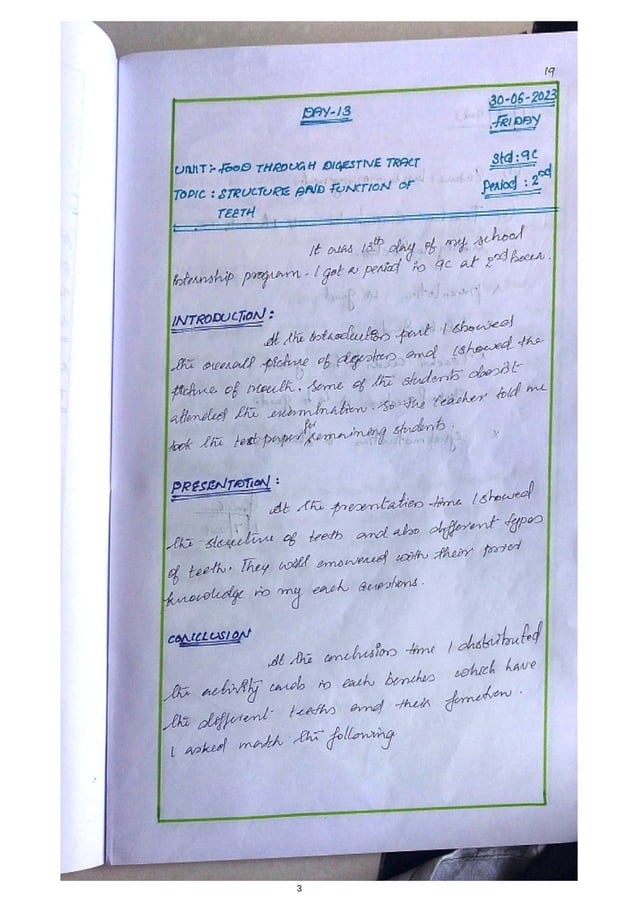 19
DAY-13
30-06-2023
FRIDAY
UNIT:- FOOD THROUGH DIGESTIVE TRACT
Std: 9C
TOPIC: STRUCTURE AND FUNCTION OF
Period: 2nd
TEETH
It was 13th day of my school
Internship program. I got a period in 9C at 2nd hour.
INTRODUCTION:
At the Introduction part I showed
the overall picture of digestion and I showed the
picture of mouth. Some of the students doesn't
attended the examination. So the teacher told me
took the test paper for remaining students.
PRESENTATION:
At the presentation time I showed
the structure of teeth and also different types
of teeth. They well answered with their
knowledge in my each questions.
CONCLUSION
At the conclusion time I distributed
the activity cards in each benches which have
the different teeths and their function.
I asked match the following
3